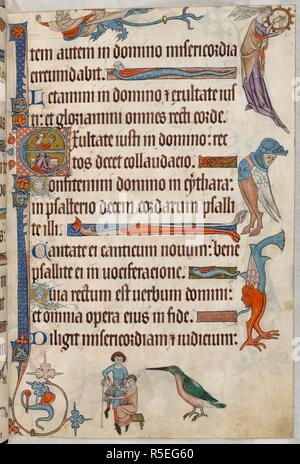 tem autem in domino misericordia
circumdabit.
Letamini in domino et exultate ius
ti: et gloriamini omnes recti corde.
Exultate iusti in domino: rec
tos decet collaudacio.
Confitemini domino in cythara:
in psalterio decem cordarum psalli
te illi.
Cantate ei canticum novum: bene
psallite ei in vociferacione.
Quia rectum est verbum domini:
et omnia opera eius in fide.
Diligit misericordiam et iudicium:
alamy
Image ID: R5EG60
www.alamy.com